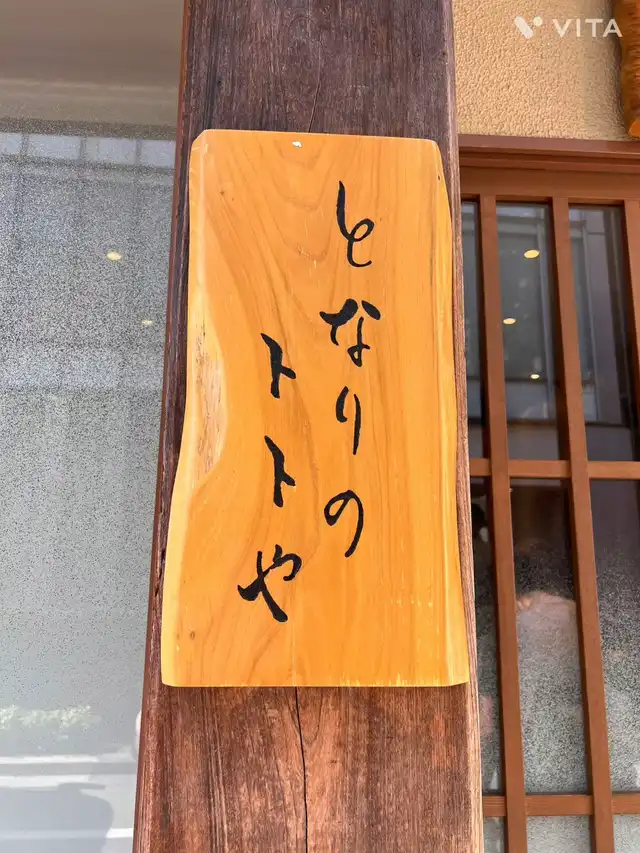 となりの
トトや
VITA